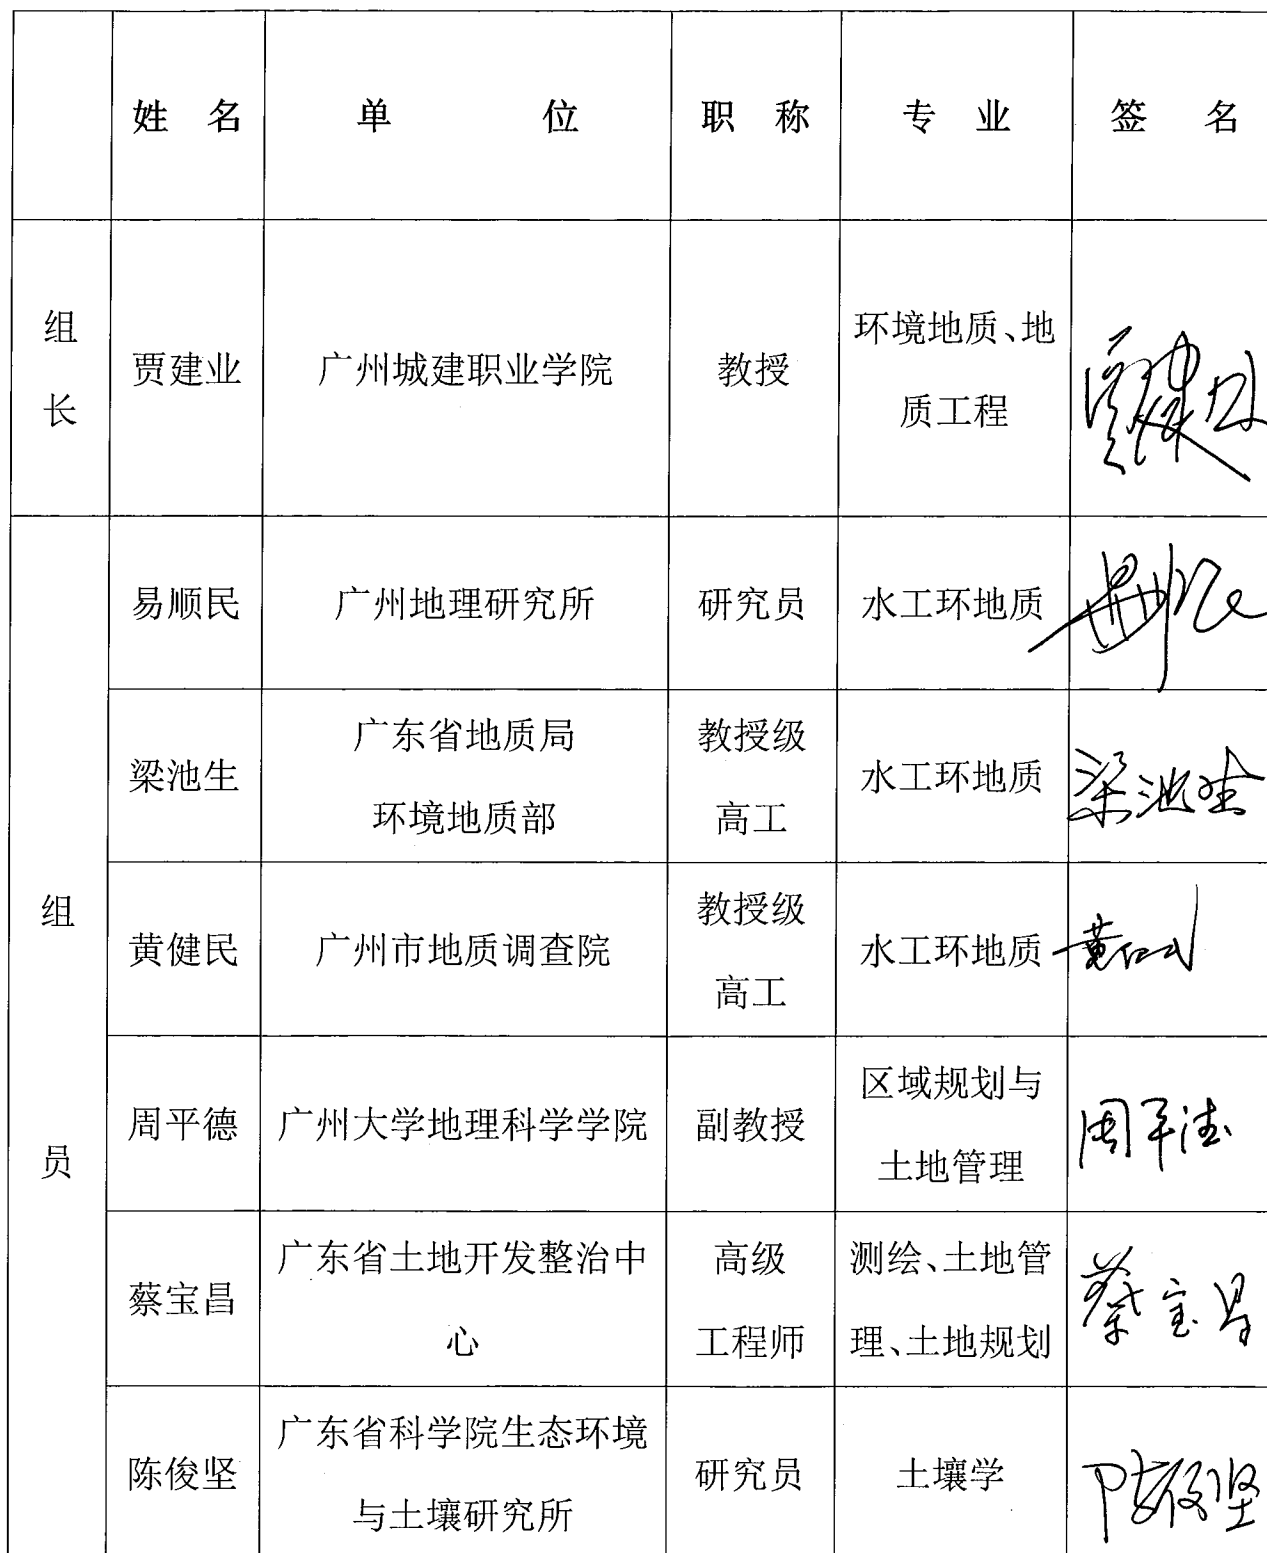 姓 名 单 位 职 称 专 业 签 名
组
长
贾建业 广州城建职业学院 教授 环境地质、地
质工程
贾建业
组
员
易顺民 广州地理研究所 研究员 水工环地质
梁池生 广东省地质局
环境地质部
教授级
高工
水工环地质 梁池生
黄健民 广州市地质调查院 教授级
高工
水工环地质
周平德 广州大学地理科学学院 副教授 区域规划与
土地管理
周平德
蔡宝昌 广东省土地开发整治中
心
高级
工程师
测绘、土地管
理、土地规划
蔡宝昌
陈俊坚 广东省科学院生态环境
与土壤研究所
研究员 土壤学 陈俊坚